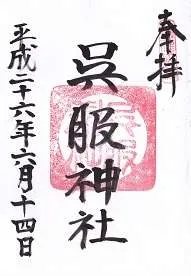 奉拝
呉服神社
平成二十六年六月十四日